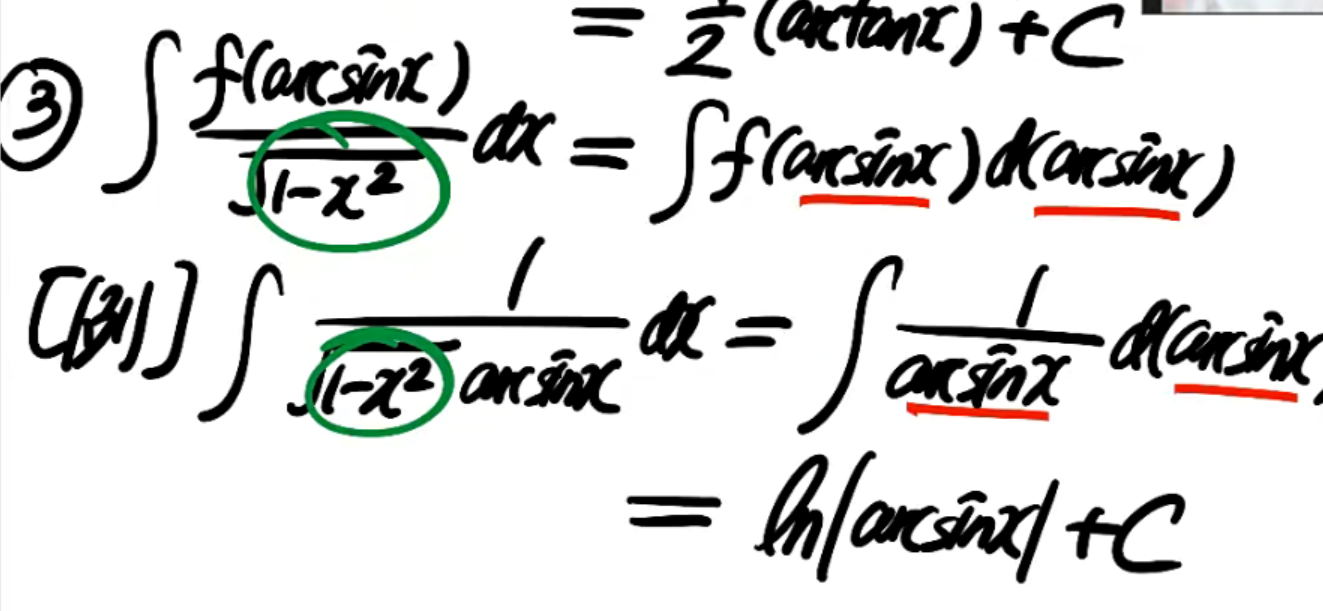 = 1/2 (arctanx) + C
③ ∫ f(arcsinx)/√(1-x²) dx = ∫ f(arcsinx) d(arcsinx)
[例] ∫ 1/(√(1-x²) arcsinx) dx = ∫ 1/arcsinx d(arcsinx)
= ln|arcsinx| + C